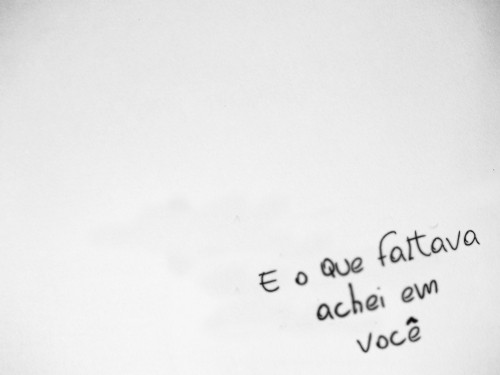 E o que faltava
achei em
você